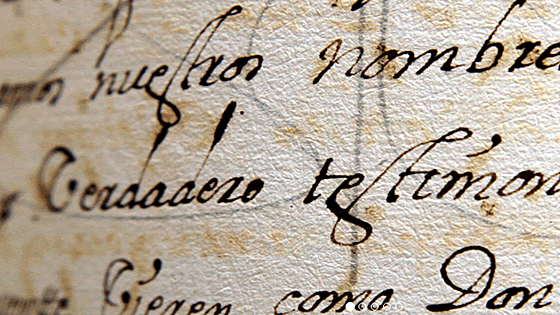 nuestros nombre
Verdadero testimon
Vieren como Don